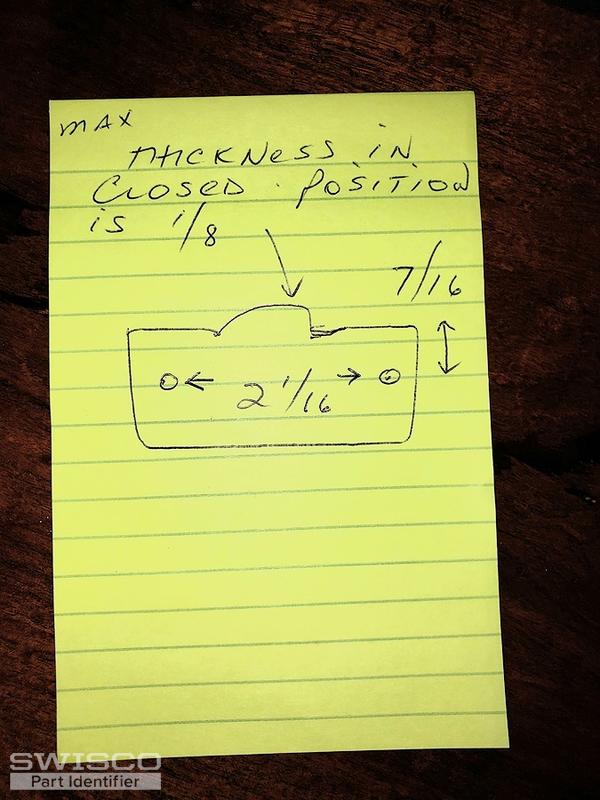 MAX
THICKNESS IN
CLOSED POSITION
is 1/8
7/16
2 1/16
SWISCO
Part Identifier